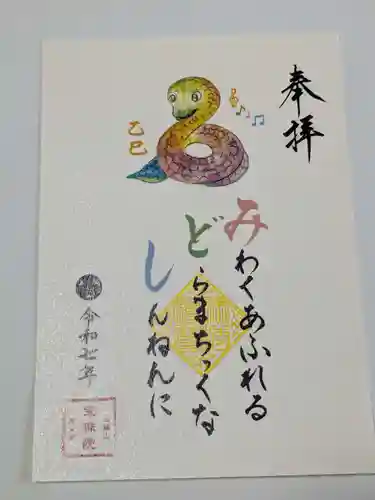 奉拝
乙巳
みわくあふれる
どらまちっくな
しんねんに
令和七年